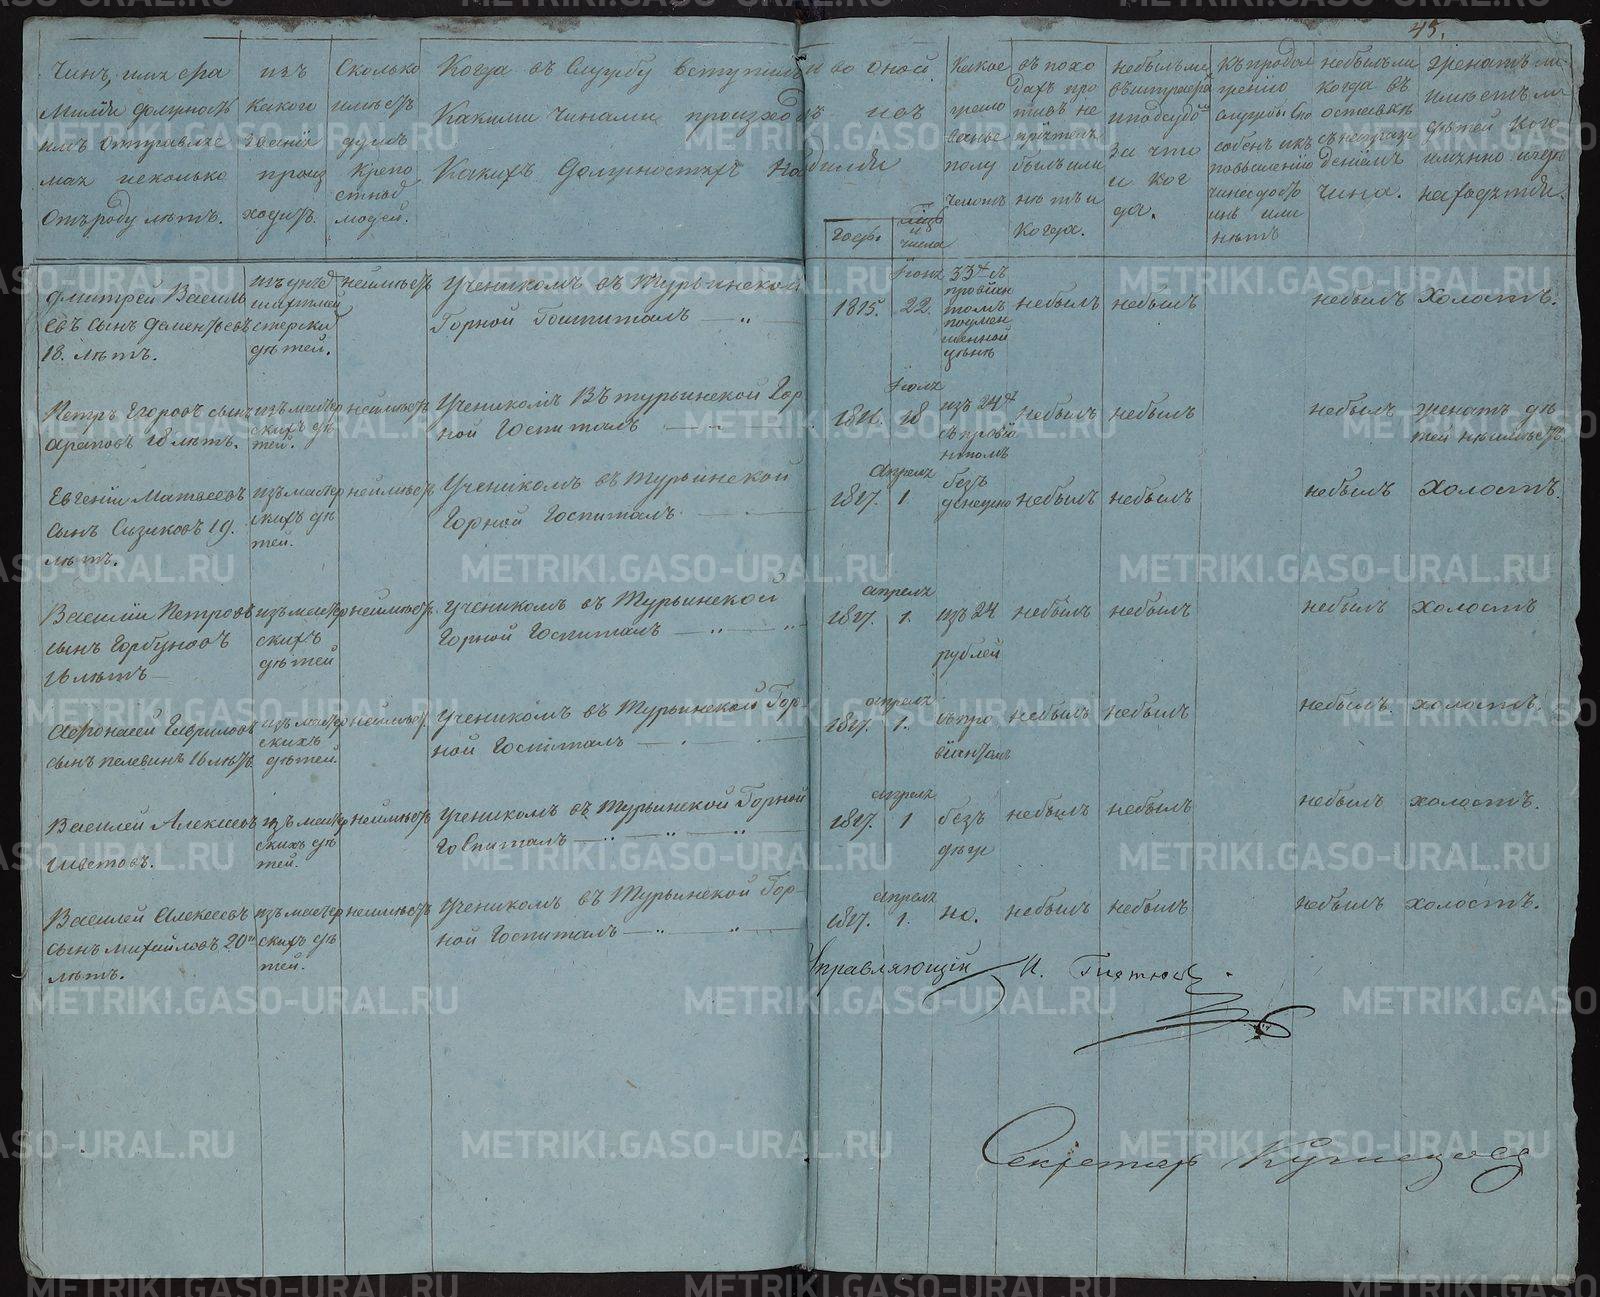 45.
Чинъ, имя фа
милія должность
изъ
какого
званія
проиs
ходитъ.
Сколько
имѣетъ
душъ
Крепо
стныхъ
людей.
Когда въ Службу вступилъ и во оной
Какими Чинами произходилъ
Какихъ Должностяхъ
отъ роду лѣтъ.
Какое
жало
ванье
полу
чаетъ
въ похо
дахъ про
тивъ не
пріятеля
былъ или
нѣтъ и
когда.
за что
и ког
да.
Къ продол
женію
службы спо
собенъ и къ
повышенію
чина
или
нѣтъ
небылъли
когда въ
чина.
женатъ ли
имѣетъ ли
дѣтей кого
имянно
годы.
числа
Дмитрей Василь
евъ Сынъ Дементьевъ
18. лѣтъ.
дѣтей.
неимѣетъ
Ученикомъ въ Турьинской
Горной Гошпиталь — „
1815.
Іюля
22.
33 р. съ
провіан
томъ
небылъ
небылъ
небылъ
Холостъ.
Петръ Егоровъ сынъ
Араповъ 18 лѣтъ.
изъ мастер
скихъ дѣ
тей.
неимѣетъ
Ученикомъ Въ турьинской Гор
ной Госпиталь
1816.
Іюля
18
изъ 24 р.
съ провіа
нтомъ
небылъ
небылъ
небылъ
женатъ дѣ
тей неимѣетъ.
Евгеній Матвеевъ
сынъ Сизиковъ 19.
лѣтъ.
изъ мастер
скихъ дѣ
тей.
неимѣетъ
Ученикомъ въ турьинской
Горной Госпиталь
1817.
апреля
1.
безъ
денежно
небылъ
небылъ
небылъ
Холостъ.
Василій Петровъ
сынъ Горбуновъ
18 лѣтъ —
изъ мастер
скихъ
дѣтей
неимѣетъ
ученикомъ въ Турьинской
Горной Госпиталь — „ — „
1817.
апреля
1.
изъ 24
рублей
небылъ
небылъ
небылъ
холостъ
Афонасей Гавриловъ
сынъ пелевинъ 16 лѣтъ
изъ мастер
скихъ
дѣтей.
неимѣетъ
ученикомъ въ Турьинской Гор-
ной Госпиталь —
1817.
апреля
1.
съ про
віантомъ
небылъ
небылъ
небылъ
холостъ.
Василей Алексеевъ
Шестовъ.
изъ мастер
скихъ дѣ
тей.
неимѣетъ
ученикомъ въ Турьинской Горной
Госпиталь — „ — „ — „
1817.
апреля
1
безъ
небылъ
небылъ
небылъ
холостъ.
Василей Алексеевъ
сынъ михайловъ 20ти
лѣтъ.
изъ мастер
скихъ дѣ
тей.
неимѣетъ
ученикомъ въ Турьинской Гор-
ной Госпиталь — „ — „
1817.
апреля
1.
но.
небылъ
небылъ
небылъ
холостъ.
Управляющій
Секретарь Кузнецовъ
METRIKI.GASO-URAL.RU